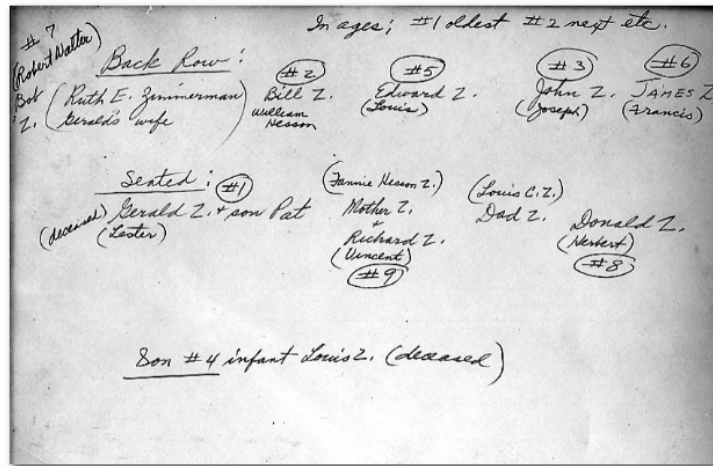 In ages; #1 oldest #2 next etc.
# 7
(Robert Walter)
Bob
Z.
Back Row:
(Ruth E. Zimmerman
Gerald's wife)
#2
Bill Z.
William
Hesson
#5
Edward Z.
(Louis)
#3
John Z.
(Joseph)
#6
JAMES Z
(Francis)
Seated:
#1
(deceased) Gerald Z. + son Pat
(Lester)
(Fannie Hesson Z.)
Mother Z.
+
Richard Z.
(Vincent)
#9
(Louis C. Z.)
Dad Z.
Donald Z.
(Herbert)
#8
Son #4 infant Louis Z. (deceased)